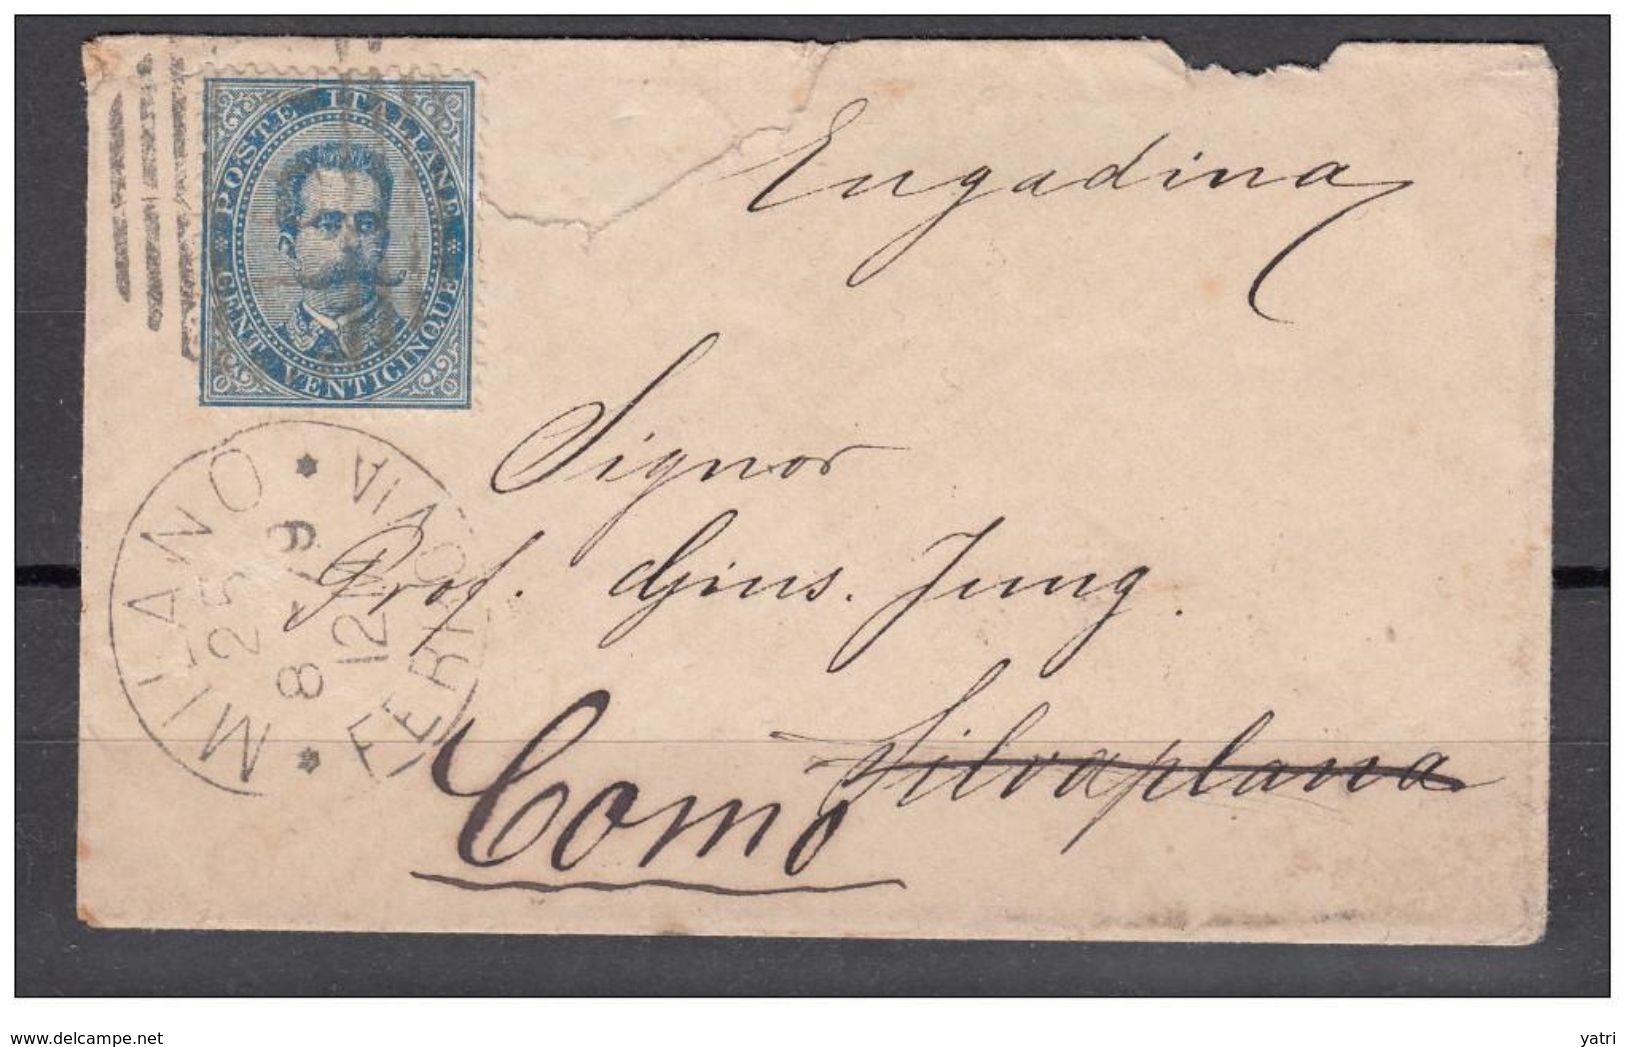 POSTE ITALIANE
CENT. VENTICINQUE
Engadina
Signor
Prof. Gius. Jung.
Silvaplana
Como
MILANO
25
8
12
FERROVIA
www.delcampe.net
yatri